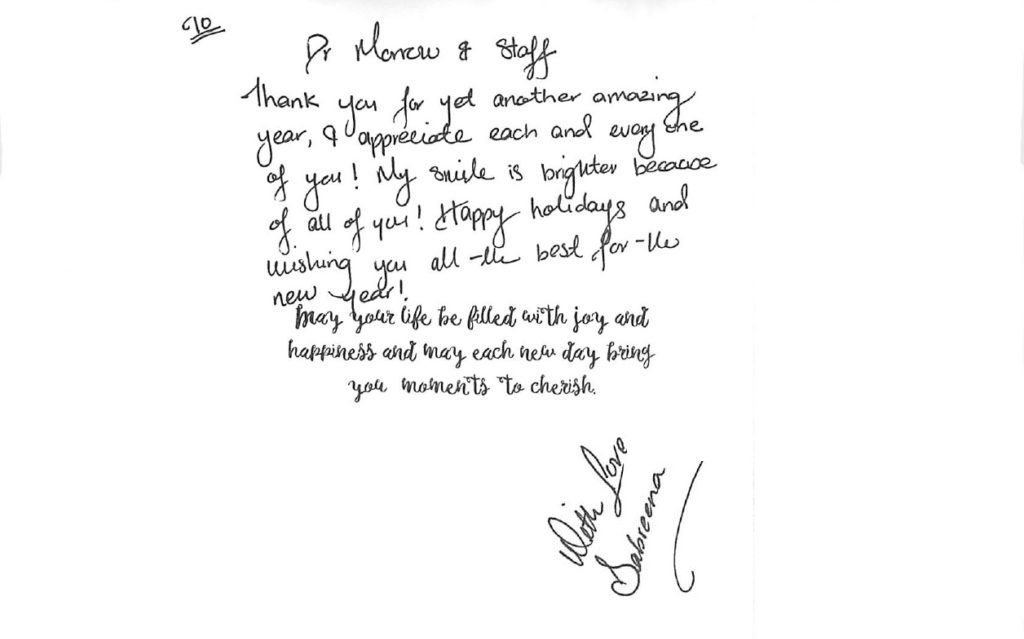 Dr Morrow & Staff
Thank you for yet another amazing
year, I appreciate each and every one
of you! My smile is brighter because
of all of you! Happy holidays and
wishing you all the best for the
new year!
May your life be filled with joy and
happiness and may each new day bring
you moments to cherish.
With Love
Sabreena